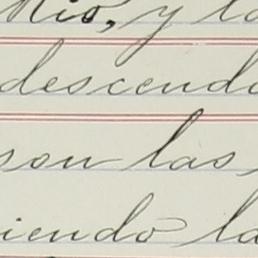 Rio, y la
descenda
son las
iendo la